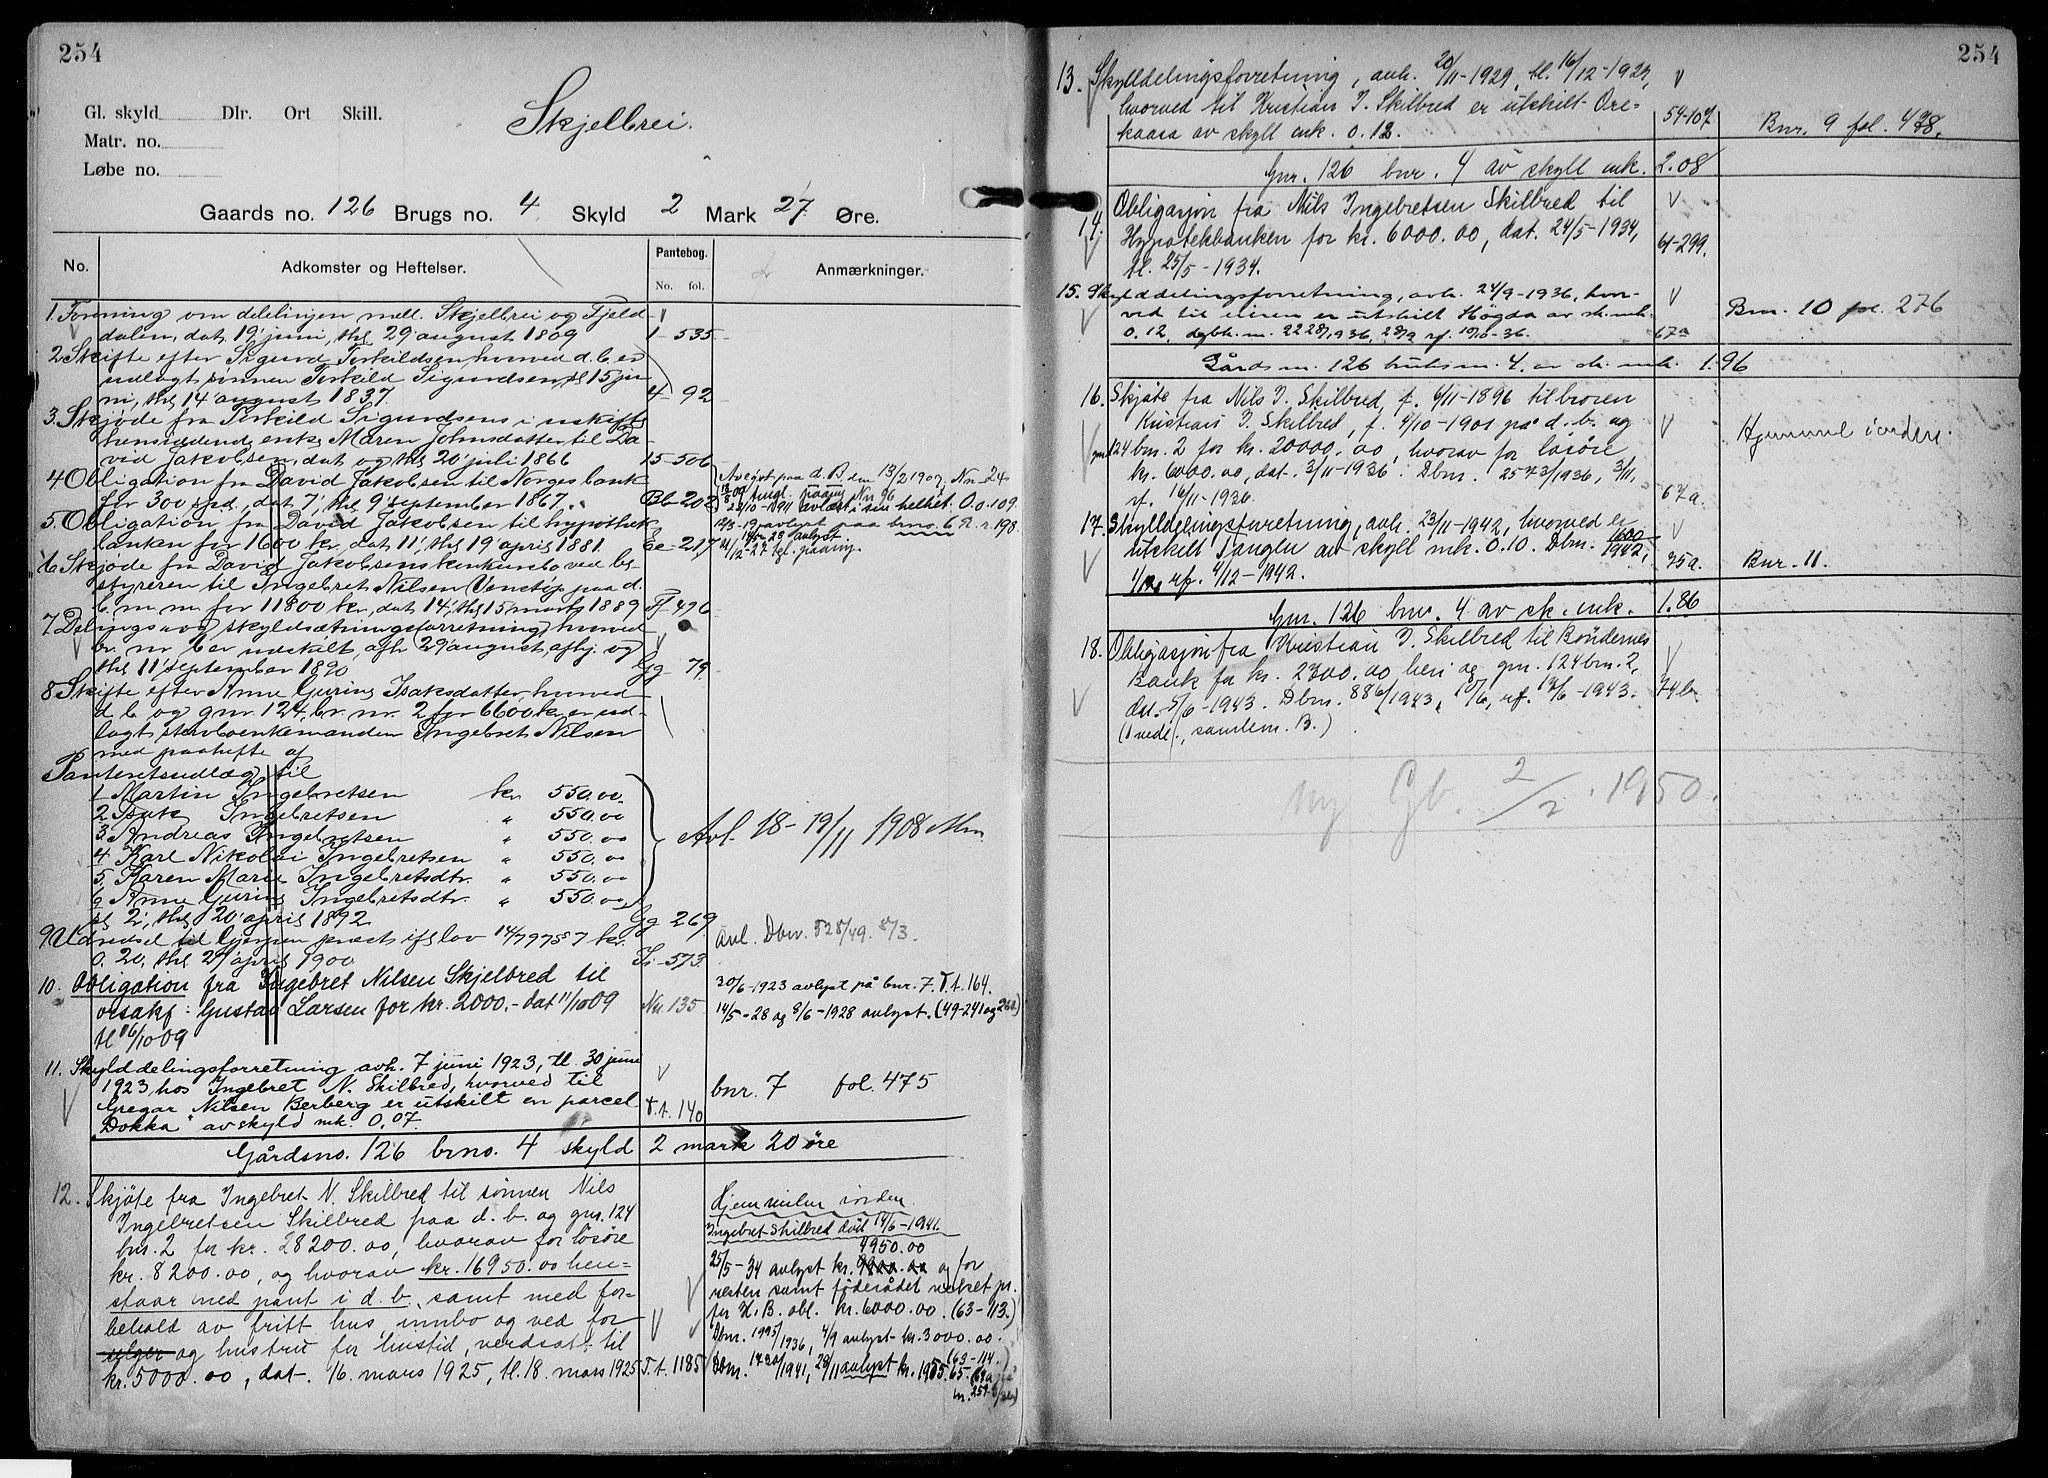 254
Gl. skyld Dlr. Ort Skill.
Matr. no.
Løbe no.
Skjelbrei.
Gaards no. 126 Brugs no. 4 Skyld 2 Mark 27 Øre.
No. Adkomster og Heftelser. Pantebog. No. fol. Anmærkninger.
1. Forening om delelinjen mell. Skjelbrei og Fjeld-
dalen, dat 19' juni, thl 29' august 1809 1-535
2 Skifte efter Sigurd Torkildsen, hvorved d. b. er
udlagt sønnen Torkild Sigurdsen, sl 15 ju-
ni, thl 14' august 1837. 4-92
3. Skjøde fra Torkild Sigurdsens i uskifte
hensiddende enke Maren Johnsdatter til Da-
vid Jakobsen, dat og thl 20' juli 1866 15-506
4 Obligation fra David Jakobsen til Norges bank
for 300 spd., dat 7', thl 9' september 1867. Bb-202
Avlyst paa d. B. den 13/2 1907. Nn-24
avlæst i sin helhet. O.o.109.
5. Obligation fra David Jakobsen til hypothek-
banken for 1600 kr, dat 11', thl 19' april 1881. Ee-217
avlyst paa brno. 6 R.r. 198.
6 Skjøde fra David Jakobsens konkursbo ved be-
styreren til Ingebret Nilsen Venstøp paa d.
b. m. m for 11800 kr, dat 14', thl 15' marts 1889 Ff 496
7 Delings- og skyldsætningsforretning, hvorved
br. nr 6 er udskilt, afh 29' august, afhj. og
thl 11' september 1890 Gg 79
8 Skifte efter Anne Gurine Isaksdatter, hvorved
d b. og gnr. 124, br. nr. 2 for 6600 kr er ud-
lagt stervboenkemanden Ingebret Nilsen
med paahefte af
Panteretsudlæg til
1 Martin Ingebretsen kr 550.00.
2 Isak Ingebretsen " 550.00
3 Andreas Ingebretsen " 550.00
4 Karl Nikolai Ingebretsen " 550.00
5. Karen Marie Ingebretsdtr. " 550.00
6 Anne Gurine Ingebretsdtr. " 550.00
Avl. 18-19/11 1908
sl 2', thl 20' april 1892 Gg 269
9 Udredsel til Gjerpen præst ifl. lov 14/7 97 § 7 kr.
0.20, thl 27' april 1900 Ii-573
avl. Dbnr. 828/49. 8/3.
10. Obligation fra Ingebret Nilsen Skjelbred til
orsakf: Gustav Larsen for kr. 2000.- dat 11/10 09 Nn. 135
tl 16/10 09
30/6-1923 avlyst på bnr. 7. T.t. 164.
14/5-28 og 8/6-1928 avlyst. (49-241 og 262)
11. Skylddelingsforretning avh. 7 juni 1923, tl. 30 juni
1923 hos Ingebret N. Skilbred, hvorved til
Gregar Nilsen Berberg er utskilt en parcel
"Dokka" av skyld mk. 0.07. T.t. 140
bnr. 7 fol. 475
Gårdsno. 126 brno. 4 skyld 2 mark 20 øre
12. Skjöte fra Ingebret N. Skilbred til sönnen Nils
Ingebretsen Skilbred paa d. b. og gnr. 124
bnr. 2 for kr. 28200.00, hvorav for lösöre
kr. 8200.00, og hvorav kr. 16950.00 hen-
staar med pant i d. b., samt med for-
behold av fritt hus, innbo og ved for
selger og hustru for livstid, verdsat til
kr. 5000.00, dat. 16. mars 1925, tl. 18. mars 1925 T.t. 1185
Hjemmelen i orden.
Ingebret Skilbred död 14/6-1941
4950.00
25/5-34 avlyst kr. og for
resten samt föderådet veket pr.
for H.B. obl. kr. 6000.00. (63-113.)
Dbnr. 1995/1936, 4/9 avlyst kr. 3000.00.
(63-114.)
Dbnr. 1720/1941, 28/11 avlyst kr. 1905.65.
254
13. Skylldelingsforretning, avh. 20/11-1929, tl. 16/12-1929,
hvorved til Kristian I. Skilbred er utskilt Ore-
kaasa av skyll mk. 0.12. 54-107 Bnr. 9 fol. 478.
Gnr. 126 bnr. 4 av skyll mk. 2.08
14. Obligasjon fra Nils Ingebretsen Skilbred til
Hypotekbanken for kr. 6000.00, dat. 24/5-1934, 61-299.
tl. 25/5-1934.
15. Skylddelingsforretning, avh. 24/9-1936, hvor-
ved til eieren er utskilt Högda av sk. mk.
0.12, dagbk. nr. 2228/1936, 28/9 rf. 10/10-36. 67a Bnr. 10 fol. 276
Gårds nr. 126 bruks nr. 4. av sk. mk. 1.96
16. Skjøte fra Nils I. Skilbred, f. 6/11-1896 til broren
Kristian I. Skilbred, f. 4/10-1901 på d. b. og
gnr. 124 bnr. 2 for kr. 20000.00, hvorav for lösöre
kr. 6000.00, dat. 3/11-1936. Dbnr. 2573/1936, 3/11,
rf. 16/11-1936. 67a.
Hjemmel i orden.
17. Skylldelingsforretning, avh. 23/11-1942, hvorved er
utskilt Tangen av skyll mk. 0.10. Dbnr. 1600/1942,
1/12, rf. 4/12-1942. 75a. Bnr. 11.
Gnr. 126 bnr. 4 av sk. mk. 1.86
18. Obligasjon fra Kristian I. Skilbred til Böndernes
Bank for kr. 2300.00 heri og gnr. 124 bnr. 2,
dat. 5/6-1943. Dbnr. 886/1943, 10/6, rf. 12/6-1943. 74b
samlem. B.)
ny Gb. 2/2 1950.